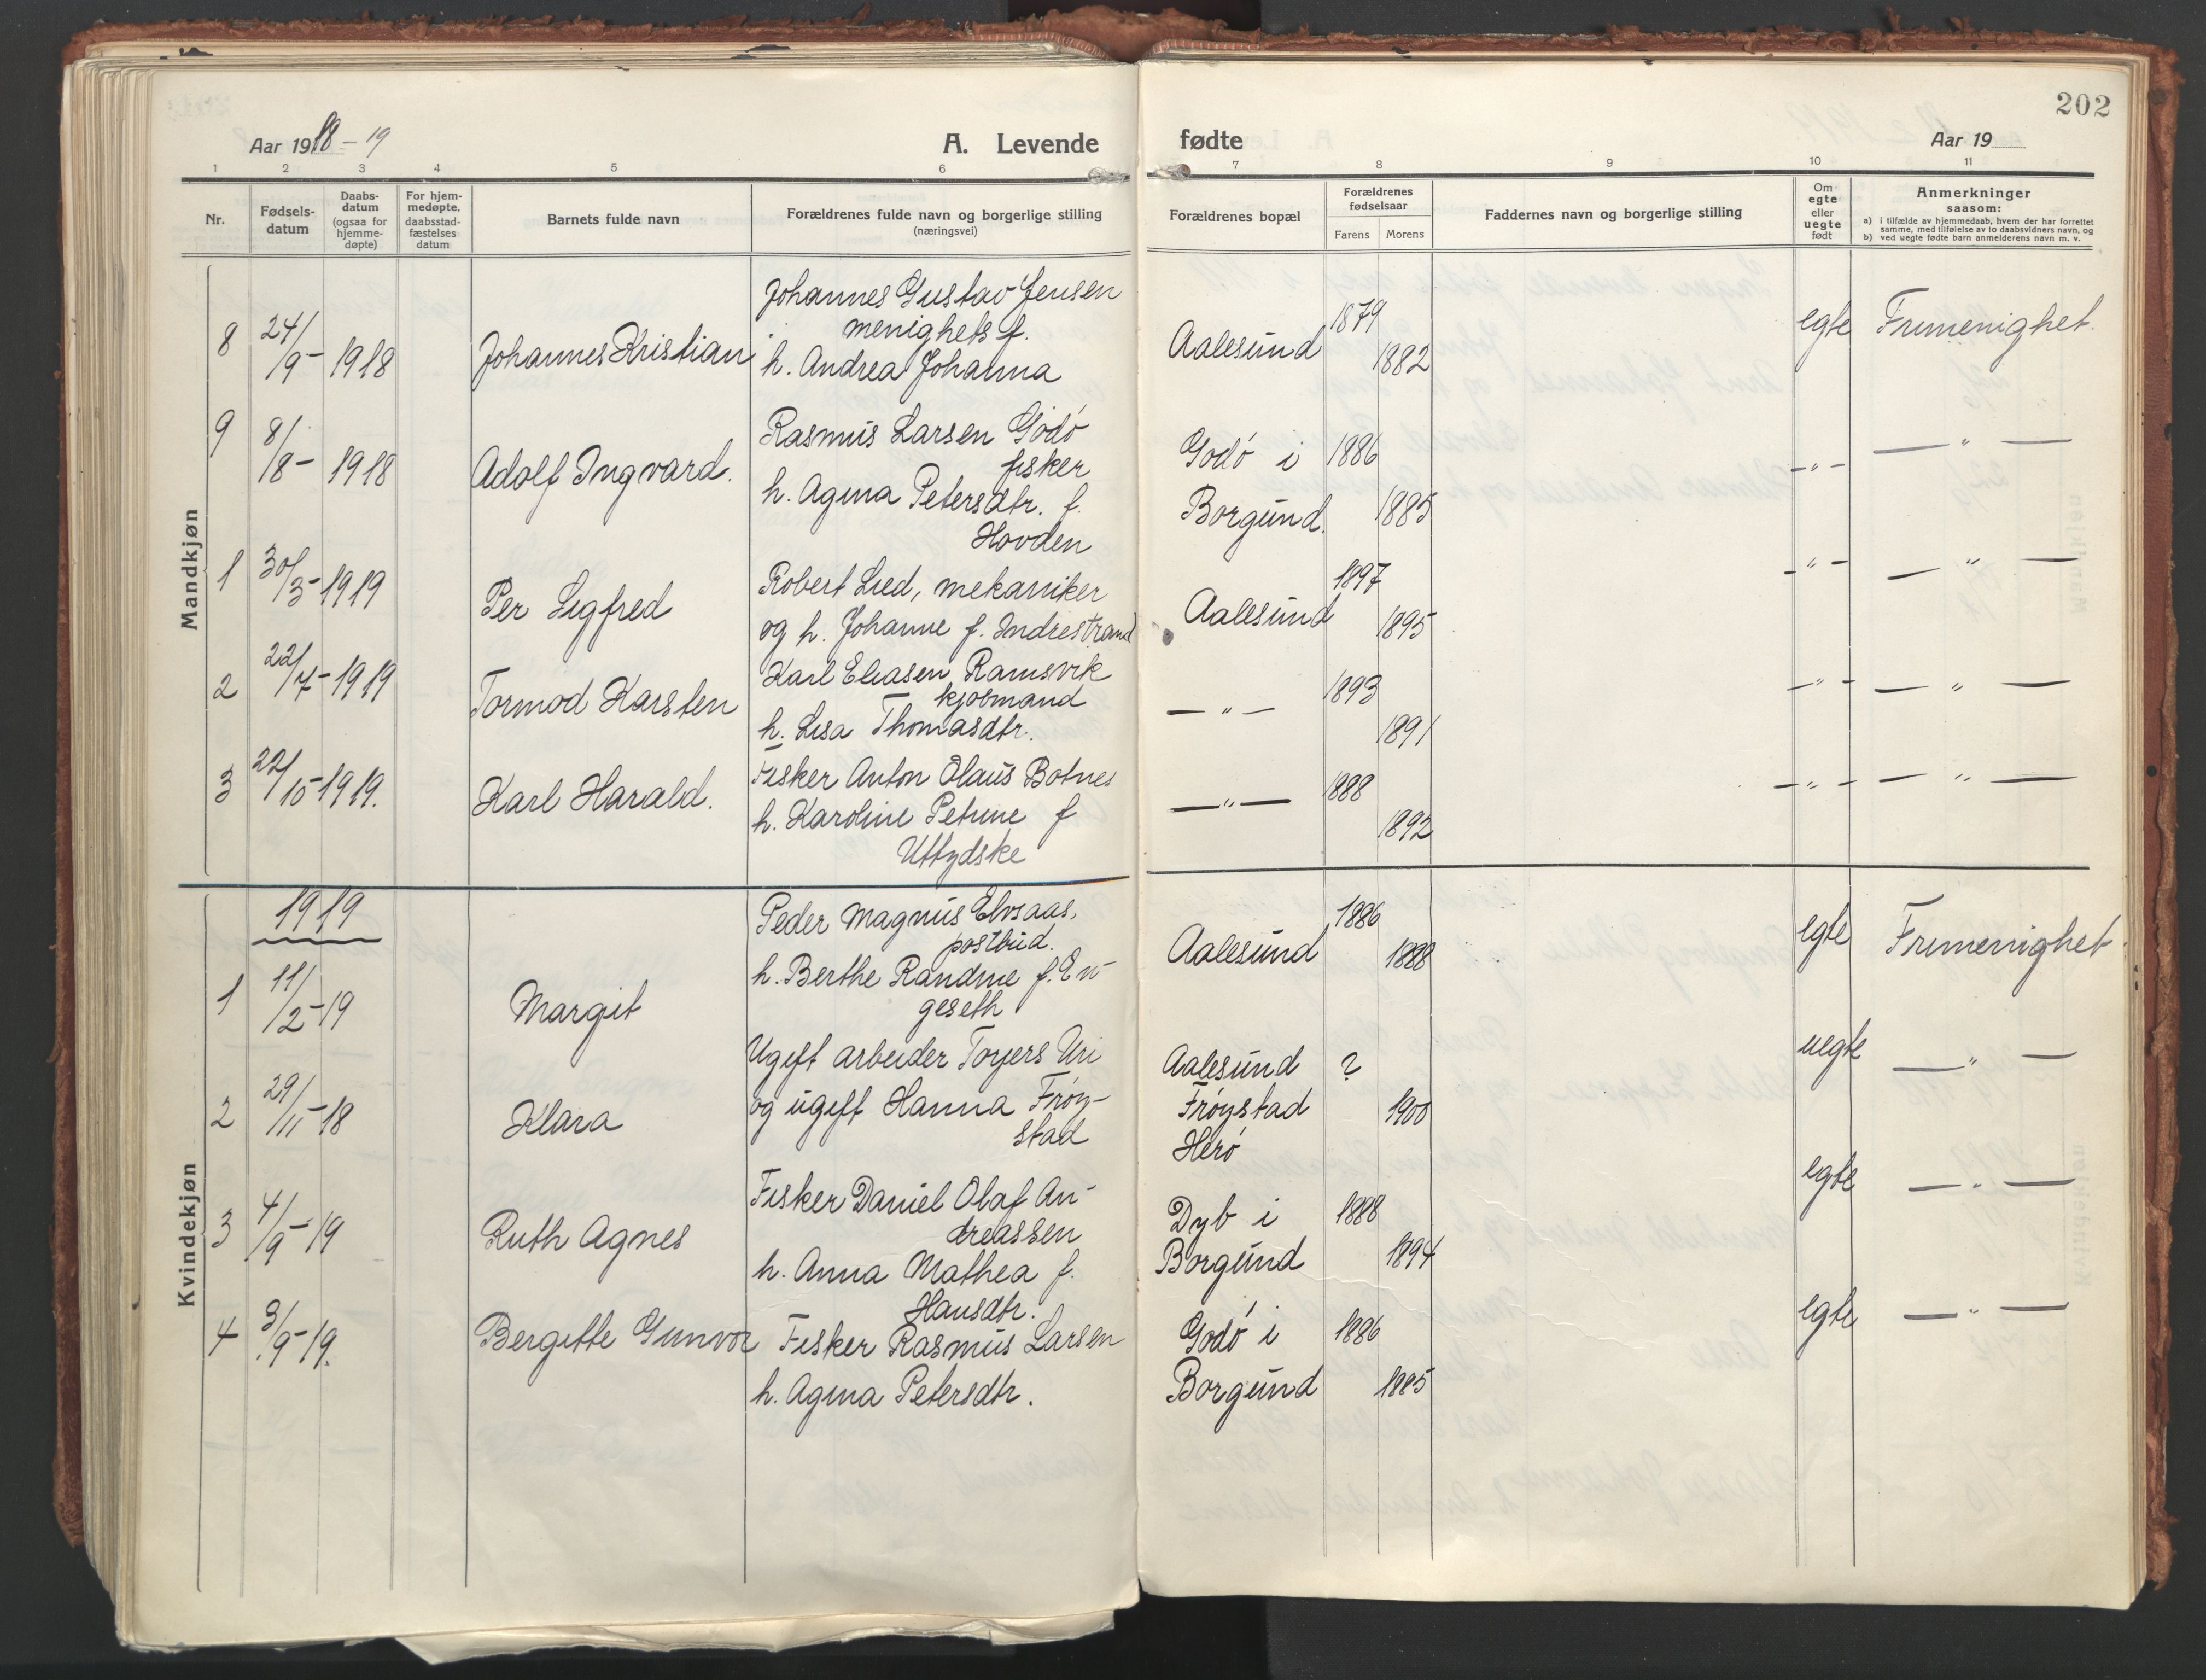 202
Aar 1918-19
A. Levende fødte
Aar 19
1 2 3 4 5 6 7 8 9 10 11
Nr.
Fødsels-
datum
Daabs-
datum
(ogsaa for
hjemme-
døpte)
For hjem-
medøpte,
daabsstad-
fæstelses
datum
Barnets fulde navn
Forældrenes fulde navn og borgerlige stilling
(næringsvei)
Forældrenes bopæl
Forældrenes
fødselsaar
Farens Morens
Faddernes navn og borgerlige stilling
Om
egte
eller
uegte
født
Anmerkninger
saasom:
a) i tilfælde av hjemmedaab, hvem der har forrettet
samme, med tilføielse av to daabsvidners navn, og
b) ved uegte fødte barn anmelderens navn m. v.
Mandkjøn
8 24/9- 1918 Johannes Kristian
Johannes Gustav Jensen
menighets f.
h. Andrea Johanna
Aalesund 1879
1882
egte Frimenighet.
9 8/8- 1918 Adolf Ingvard.
Rasmus Larsen Godö
fisker
h. Agma Petersdtr. f.
Hovden
Godö i 1886
Borgund. 1885
-"- — " —
1 30/3- 1919 Per Sigfred
Robert Lied, mekaniker
og h. Johanne f. Indrestrand
Aalesund 1897
1895
-"- — " —
2 22/7- 1919 Tormod Karsten
Karl Eliasen Ramsvik
kjøbmand
h. Lisa Thomasdtr.
— " — 1893
1891
-"- — " —
3 22/10-1919. Karl Harald.
Fisker Anton Olaus Botnes
h. Karoline Petrine f
Uttydske
— " — 1888
1892
-"- — " —
Kvindekjøn
1919
1 11/2-19 Margit
Peder Magnus Elvsaas,
postbud.
h. Berthe Randine f. En-
geseth
Aalesund 1886
1888
egte Frimenighet
2 29/11-18 Klara
Ugift arbeider Torjers Uri
og ugift Hanna Fröy-
stad
Aalesund ?
Fröystad 1900
Herö
uegte — " —
3 4/9-19 Ruth Agnes
Fisker Daniel Olaf An-
dreassen
h. Anna Mathea f.
Hansdtr.
Dyb i 1888
Borgund 1894
egte — " —
4 3/9-19. Bergitte Gunvor
Fisker Rasmus Larsen
h. Agma Petersdtr.
Godö i 1886
Borgund 1885
egte — " —